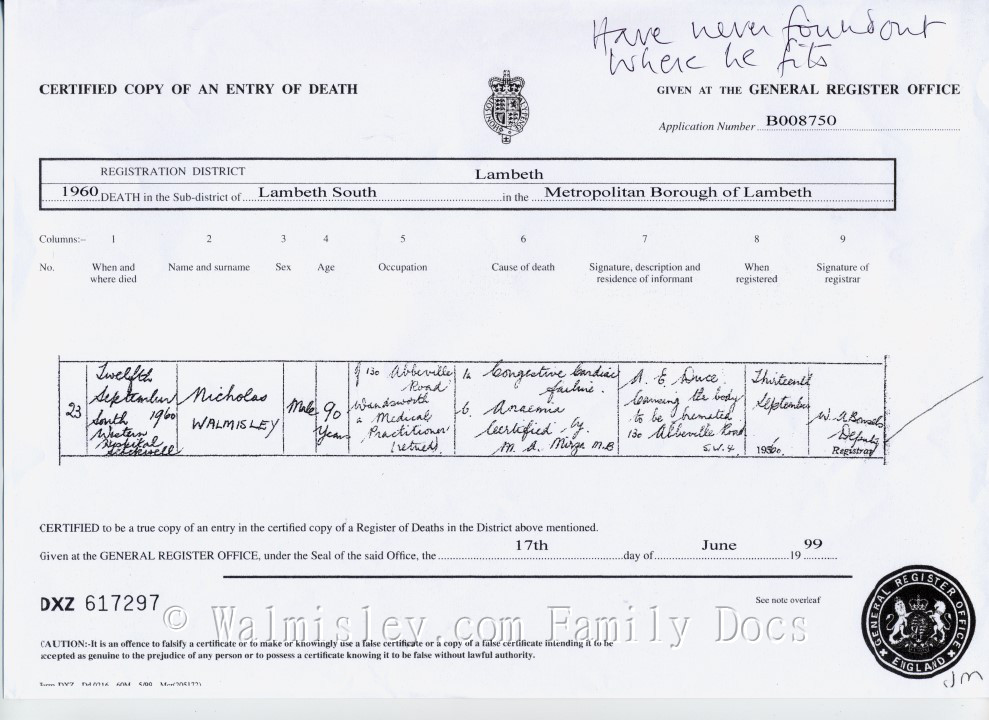 Have never found out
where he fits
CERTIFIED COPY OF AN ENTRY OF DEATH
GIVEN AT THE GENERAL REGISTER OFFICE
Application Number B008750
REGISTRATION DISTRICT Lambeth
1960 DEATH in the Sub-district of Lambeth South in the Metropolitan Borough of Lambeth
Columns:– 1 2 3 4 5 6 7 8 9
No. When and where died Name and surname Sex Age Occupation Cause of death Signature, description and residence of informant When registered Signature of registrar
23
Twelfth
September
1960
South
Western
Hospital
Stockwell
Nicholas
WALMISLEY
Male
90
Years
of 130 Abbeville
Road
Wandsworth
a Medical
Practitioner
(retired)
1a Congestive Cardiac
failure.
b. Anaemia
Certified by
M. A. Mirza M.B
A. E. Duce
Causing the body
to be cremated
130 Abbeville Road
S.W.4
Thirteenth
September
1960.
Deputy
Registrar
CERTIFIED to be a true copy of an entry in the certified copy of a Register of Deaths in the District above mentioned.
Given at the GENERAL REGISTER OFFICE, under the Seal of the said Office, the 17th day of June 19 99
DXZ 617297
See note overleaf
© Walmisley.com Family Docs
CAUTION:-It is an offence to falsify a certificate or to make or knowingly use a false certificate or a copy of a false certificate intending it to be
accepted as genuine to the prejudice of any person or to possess a certificate knowing it to be false without lawful authority.
GENERAL REGISTER OFFICE
ENGLAND
JM